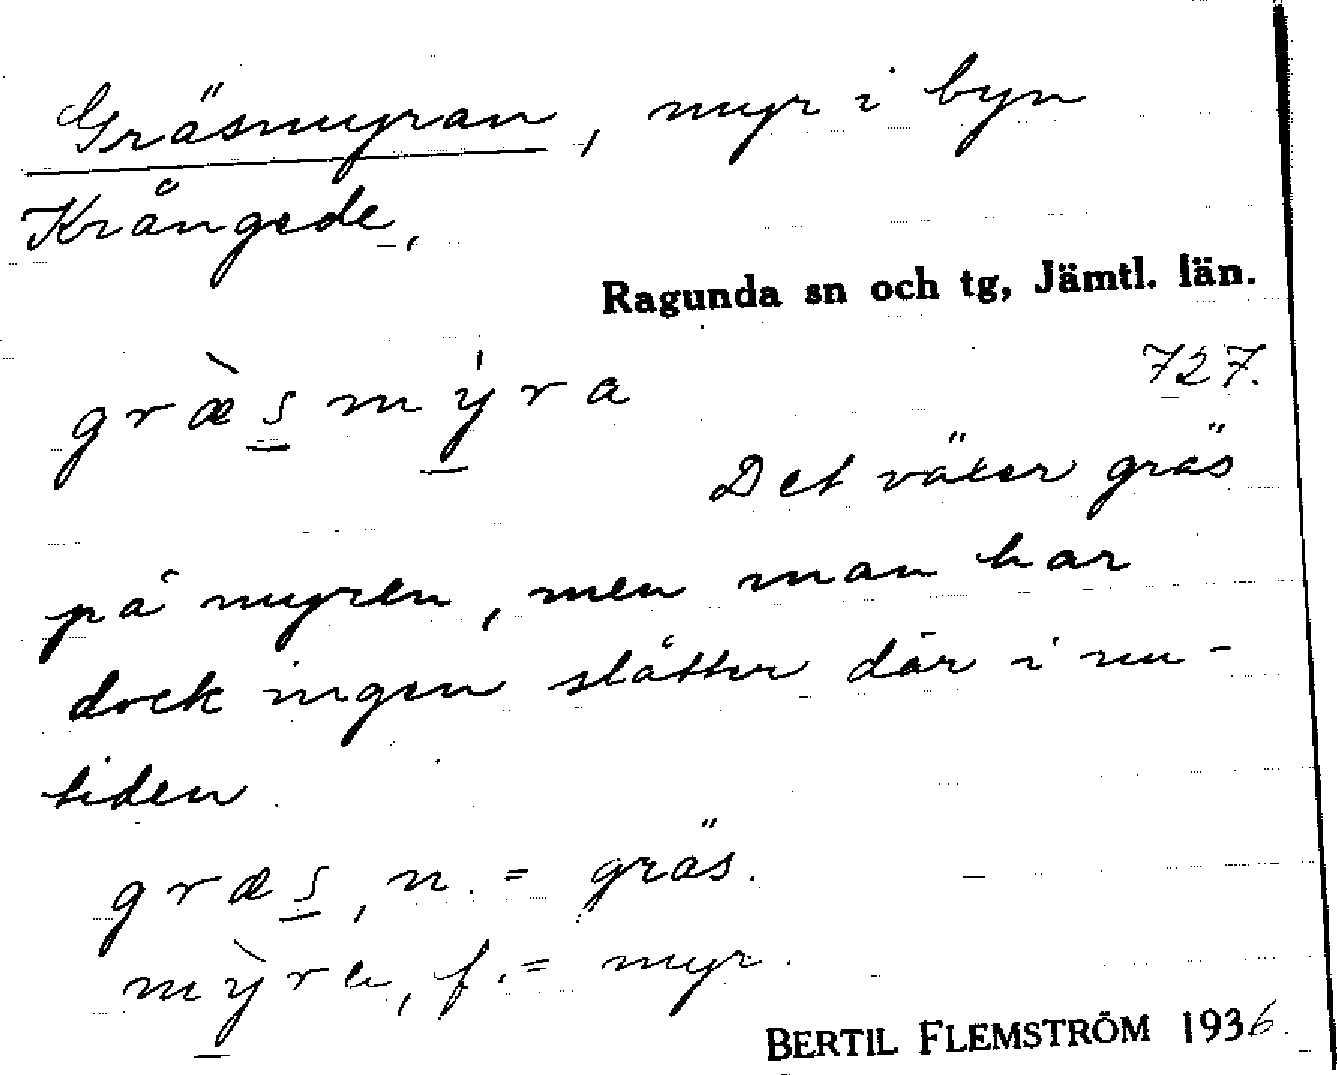 Gräsmyran, myr i byn
Krångede,
Ragunda sn och tg, Jämtl. län.
727.
græ̀s̲mý̲ra
Det växer gräs
på myren, men man har
dock ingen slåtter där i nu-
tiden.
græs̲, n. = gräs.
mỳ̲ra, f. = myr.
BERTIL FLEMSTRÖM 1936.